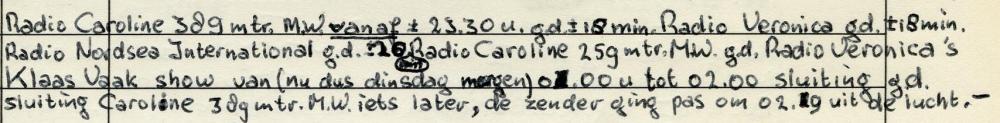 Radio Caroline 389 mtr. M.W. vanaf ± 23.30 u. g.d. ± 18 min. Radio Veronica g.d. ± 18 min.
Radio Nordsea International g.d. ± 20 min Radio Caroline 259 mtr. M.W. g.d. Radio Veronica's
Klaas Vaak show van (nu dus dinsdag morgen) 01.00 u tot 02.00 sluiting g.d.
sluiting Caroline 389 mtr. M.W. iets later, de zender ging pas om 02.19 uit de lucht. —